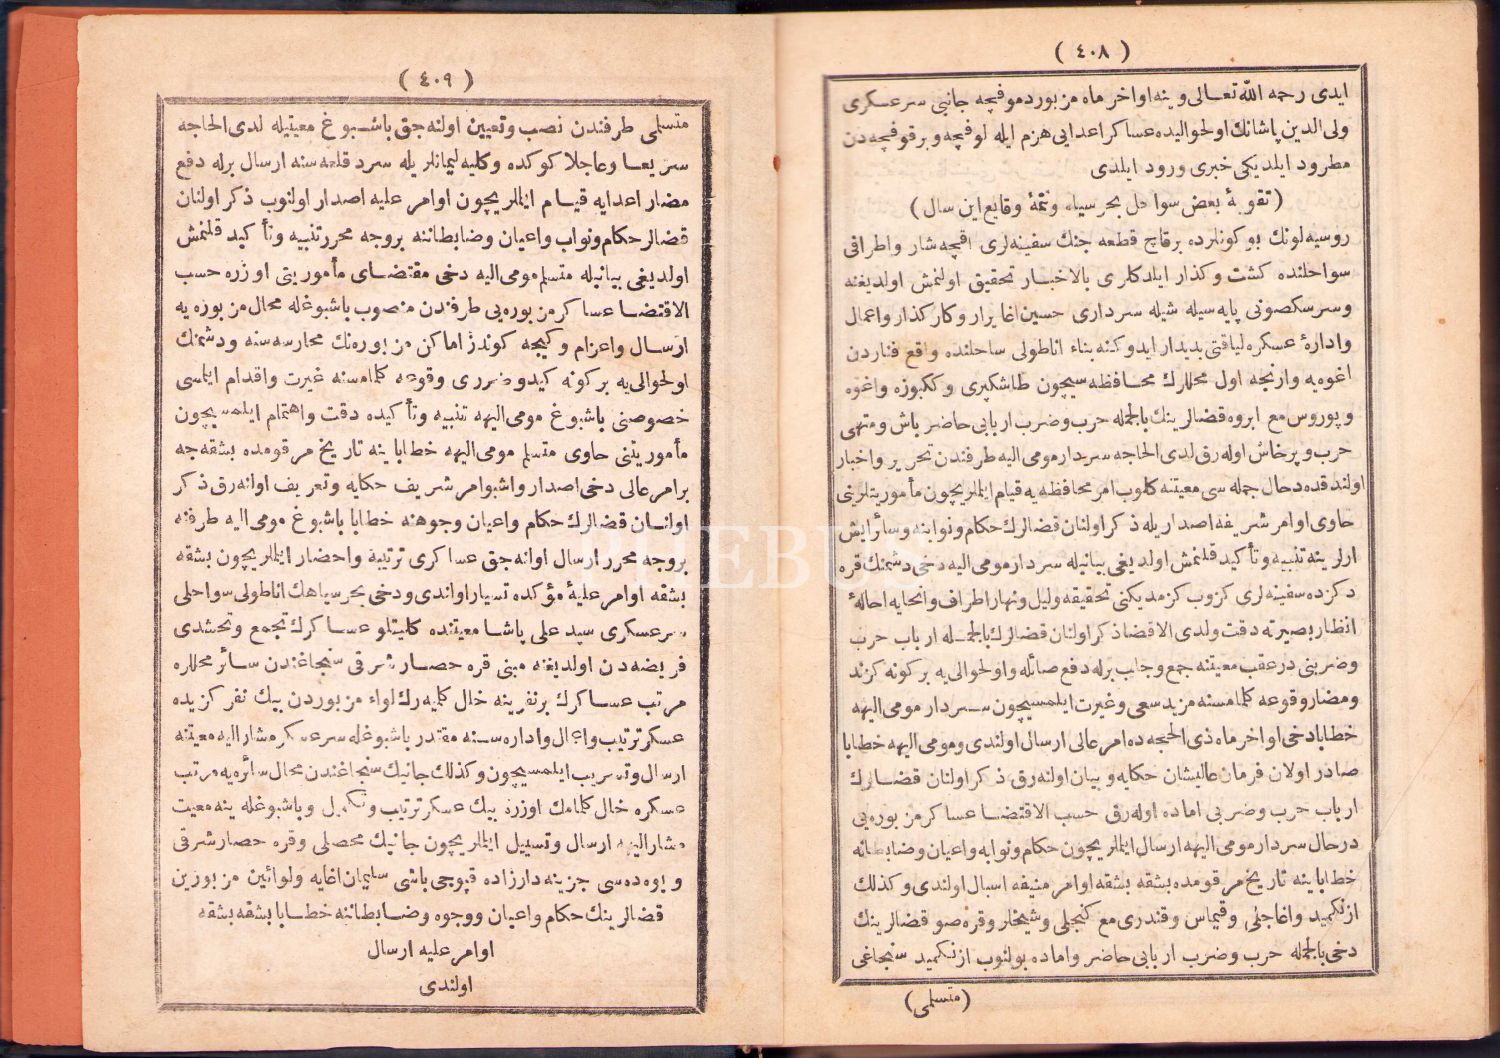 ( ٤٠٨ )
ایدی رحمه الله تعالی وینه اواخر ماه مزبورده موفچه جانبی سرعسکری
ولی الدین پاشانك اولحوالیده عساکر اعدایی هزم ایله لوفچه و برقوفچه دن
مطرود ایلدیکی خبری ورود ایلدی
( تقویهٔ بعض سواحل بحر سیاه وتتمهٔ وقایع این سال )
روسیه لونك بو کونلرده برقاچ قطعه جنك سفینه لری اقچه شار واطرافی
سواحلنده کشت وکذار ایلدکلری بالاخبار تحقیق اولنمش اولدیغنه
وسرسکصونی پایه سیله شیله سرداری حسین اغا یرار وکارکذار واعمال
وادارهٔ عسکره لیاقتی بدیدار ایدوکنه بناء اناطولی ساحلنده واقع فناردن
اغوه یه وارنجه اول محللرك محافظه سیچون طاشکپری وککبوزه واغوه
مع ابروه قضالرینك بالجمله حرب وضرب اربابی حاضر باش ومنتهی
حرب وپرخاش اوله رق لدی الحاجه سردار مومی الیه طرفندن تحریر واخبار
اولندقده درحال جمله سی معیتنه کلوب امر محافظه یه قیام ایلملریچون مأموریتلرینی
حاوی اوامر شریفه اصداریله ذکر اولنان قضالرك حکام ونوابنه وسائر ایش
ارلرینه تنبیه وتأکید قلنمش اولدیغی بیانیله سردار مومی الیه دخی دشمنك قره
دکزده سفینه لری کزوب کزمدیکنی تحقیقه ولیل ونهار اطراف وانحایه احالهٔ
انظار بصیرته دقت ولدی الاقتضا ذکر اولنان قضالرك بالجمله ارباب حرب
وضربنی درعقب معیتنه جمع وجلب برله دفع صائله واولحوالی یه برکونه کزند
ومضار وقوعه کلمامسنه مزید سعی وغیرت ایلمسیچون سردار مومی الیهه
خطابا دخی اواخر ماه ذی الحجه ده امر عالی ارسال اولندی ومومی الیهه خطابا
صادر اولان فرمان عالیشان حکایه وبیان اولنه رق ذکر اولنان قضالرك
ارباب حرب وضربی اماده اوله رق حسب الاقتضا عساکر مزبوره یی
درحال سردار مومی الیهه ارسال ایلملریچون حکام ونوابه واعیان وضابطانه
خطابا ینه تاریخ مرقومده بشقه بشقه اوامر منیفه اسبال اولندی وکذلك
ازنکمید واغاجلی وقیماس وقندری مع کنجلی وشیخلر وقره صو قضالرینك
دخی بالجمله حرب وضرب اربابی حاضر واماده بولنوب ازنکمید سنجاغی
(متسلمی)
( ٤٠٩ )
متسلمی طرفندن نصب وتعیین اولنه جق باشبوغ معیتیله لدی الحاجه
سریعا وعاجلا کوکده وکلیه لیمانلریله سرد قلعه سنه ارسال برله دفع
مضار اعدایه قیام ایلملریچون اوامر علیه اصدار اولنوب ذکر اولنان
قضالر حکام ونواب واعیان وضابطاننه بروجه محرر تنبیه وتأکید قلنمش
اولدیغی بیانیله متسلم مومی الیه دخی مقتضای مأموریتی اوزره حسب
الاقتضا عساکر مزبوره یی طرفندن منصوب باشبوغله محال مزبوره یه
ارسال واعزام وکیجه کوندز اماکن مزبوره نك محارسه سنه ودشمنك
اولحوالی یه برکونه کید وضرری وقوعه کلمامسنه غیرت واقدام ایلمسی
خصوصنی باشبوغ مومی الیهه تنبیه وتأکیده دقت واهتمام ایلمسیچون
مأموریتنی حاوی متسلم مومی الیهه خطابا ینه تاریخ مرقومده بشقه جه
برامر عالی دخی اصدار واشبو امر شریف حکایه وتعریف اولنه رق ذکر
اولنان قضالرك حکام واعیان ووجوهنه خطابا باشبوغ مومی الیه طرفنه
بروجه محرر ارسال اولنه جق عساکری ترتیبه واحضار ایلملریچون بشقه
بشقه اوامر علیهٔ مؤکده تسیار اولندی ودخی بحر سیاهك اناطولی سواحلی
سرعسکری سید علی پاشا معیتنده کلیتلو عساکرك تجمع وتحشدی
فریضه دن اولدیغنه مبنی قره حصار شرقی سنجاغندن سائر محللره
مرتب عساکرك برنفرینه خلل کلمیه رك لواء مزبوردن بیك نفر کزیده
عسکر ترتیب واعمال واداره سنه مقتدر باشبوغله سرعسکر مشار الیه معیتنه
ارسال وتسریب ایلمسیچون وکذلك جانیك سنجاغندن محال سائره یه مرتب
عسکره خلل کلمامك اوزره بیك عسکر ترتیب وتکمیل وباشبوغله ینه معیت
مشار الیهه ارسال وتسبیل ایلملریچون جانیك محصلی وقره حصار شرقی
ویوه ده سی جزینه دارزاده قپوجی باشی سلیمان اغایه ولوائین مزبورین
قضالرینك حکام واعیان ووجوه وضابطاننه خطابا بشقه بشقه
اوامر علیه ارسال
اولندی
PHEBUS